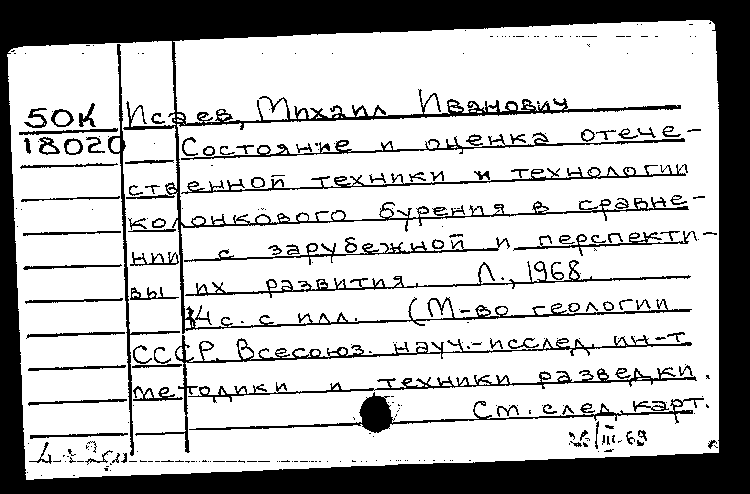 50К Исаев, Михаил Иванович
18020 Состояние и оценка отече-
ственной техники и технологии
колонкового бурения в сравне-
нии с зарубежной и перспекти-
вы их развития. Л., 1968.
14 с. с илл. (М-во геологии
СССР. Всесоюз. науч.-исслед. ин-т
методики и техники разведки.
См. след. карт.
26/III-69